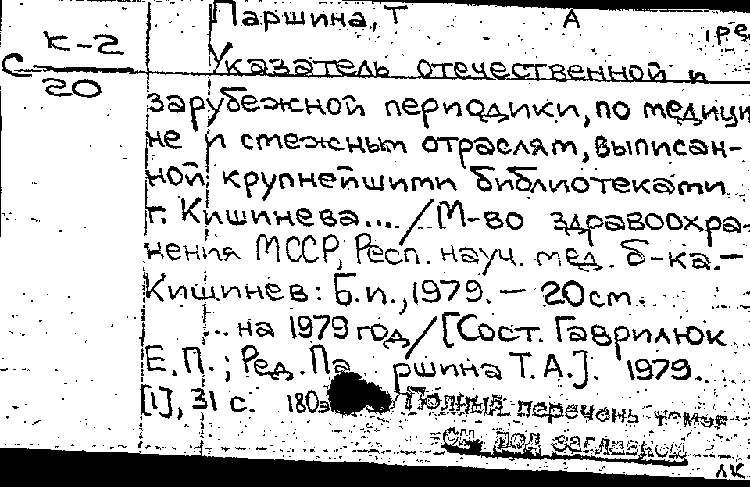 Паршина, Т А
, ре
С К-2
20
Указатель отечественной и
зарубежной периодики, по медици
не и смежным отраслям, выписан-
ной крупнейшими библиотеками
г. Кишинева... / М-во здравоохра-
нения МССР, Респ. науч. мед. б-ка. —
Кишинев: Б.и., 1979. — 20 см.
... на 1979 год / [Сост. Гаврилюк
Е.П.; Ред. Па ршина Т.А.]. 1979.
[1], 31 с. 180э Полный перечень томов
см. под заглавием
лк